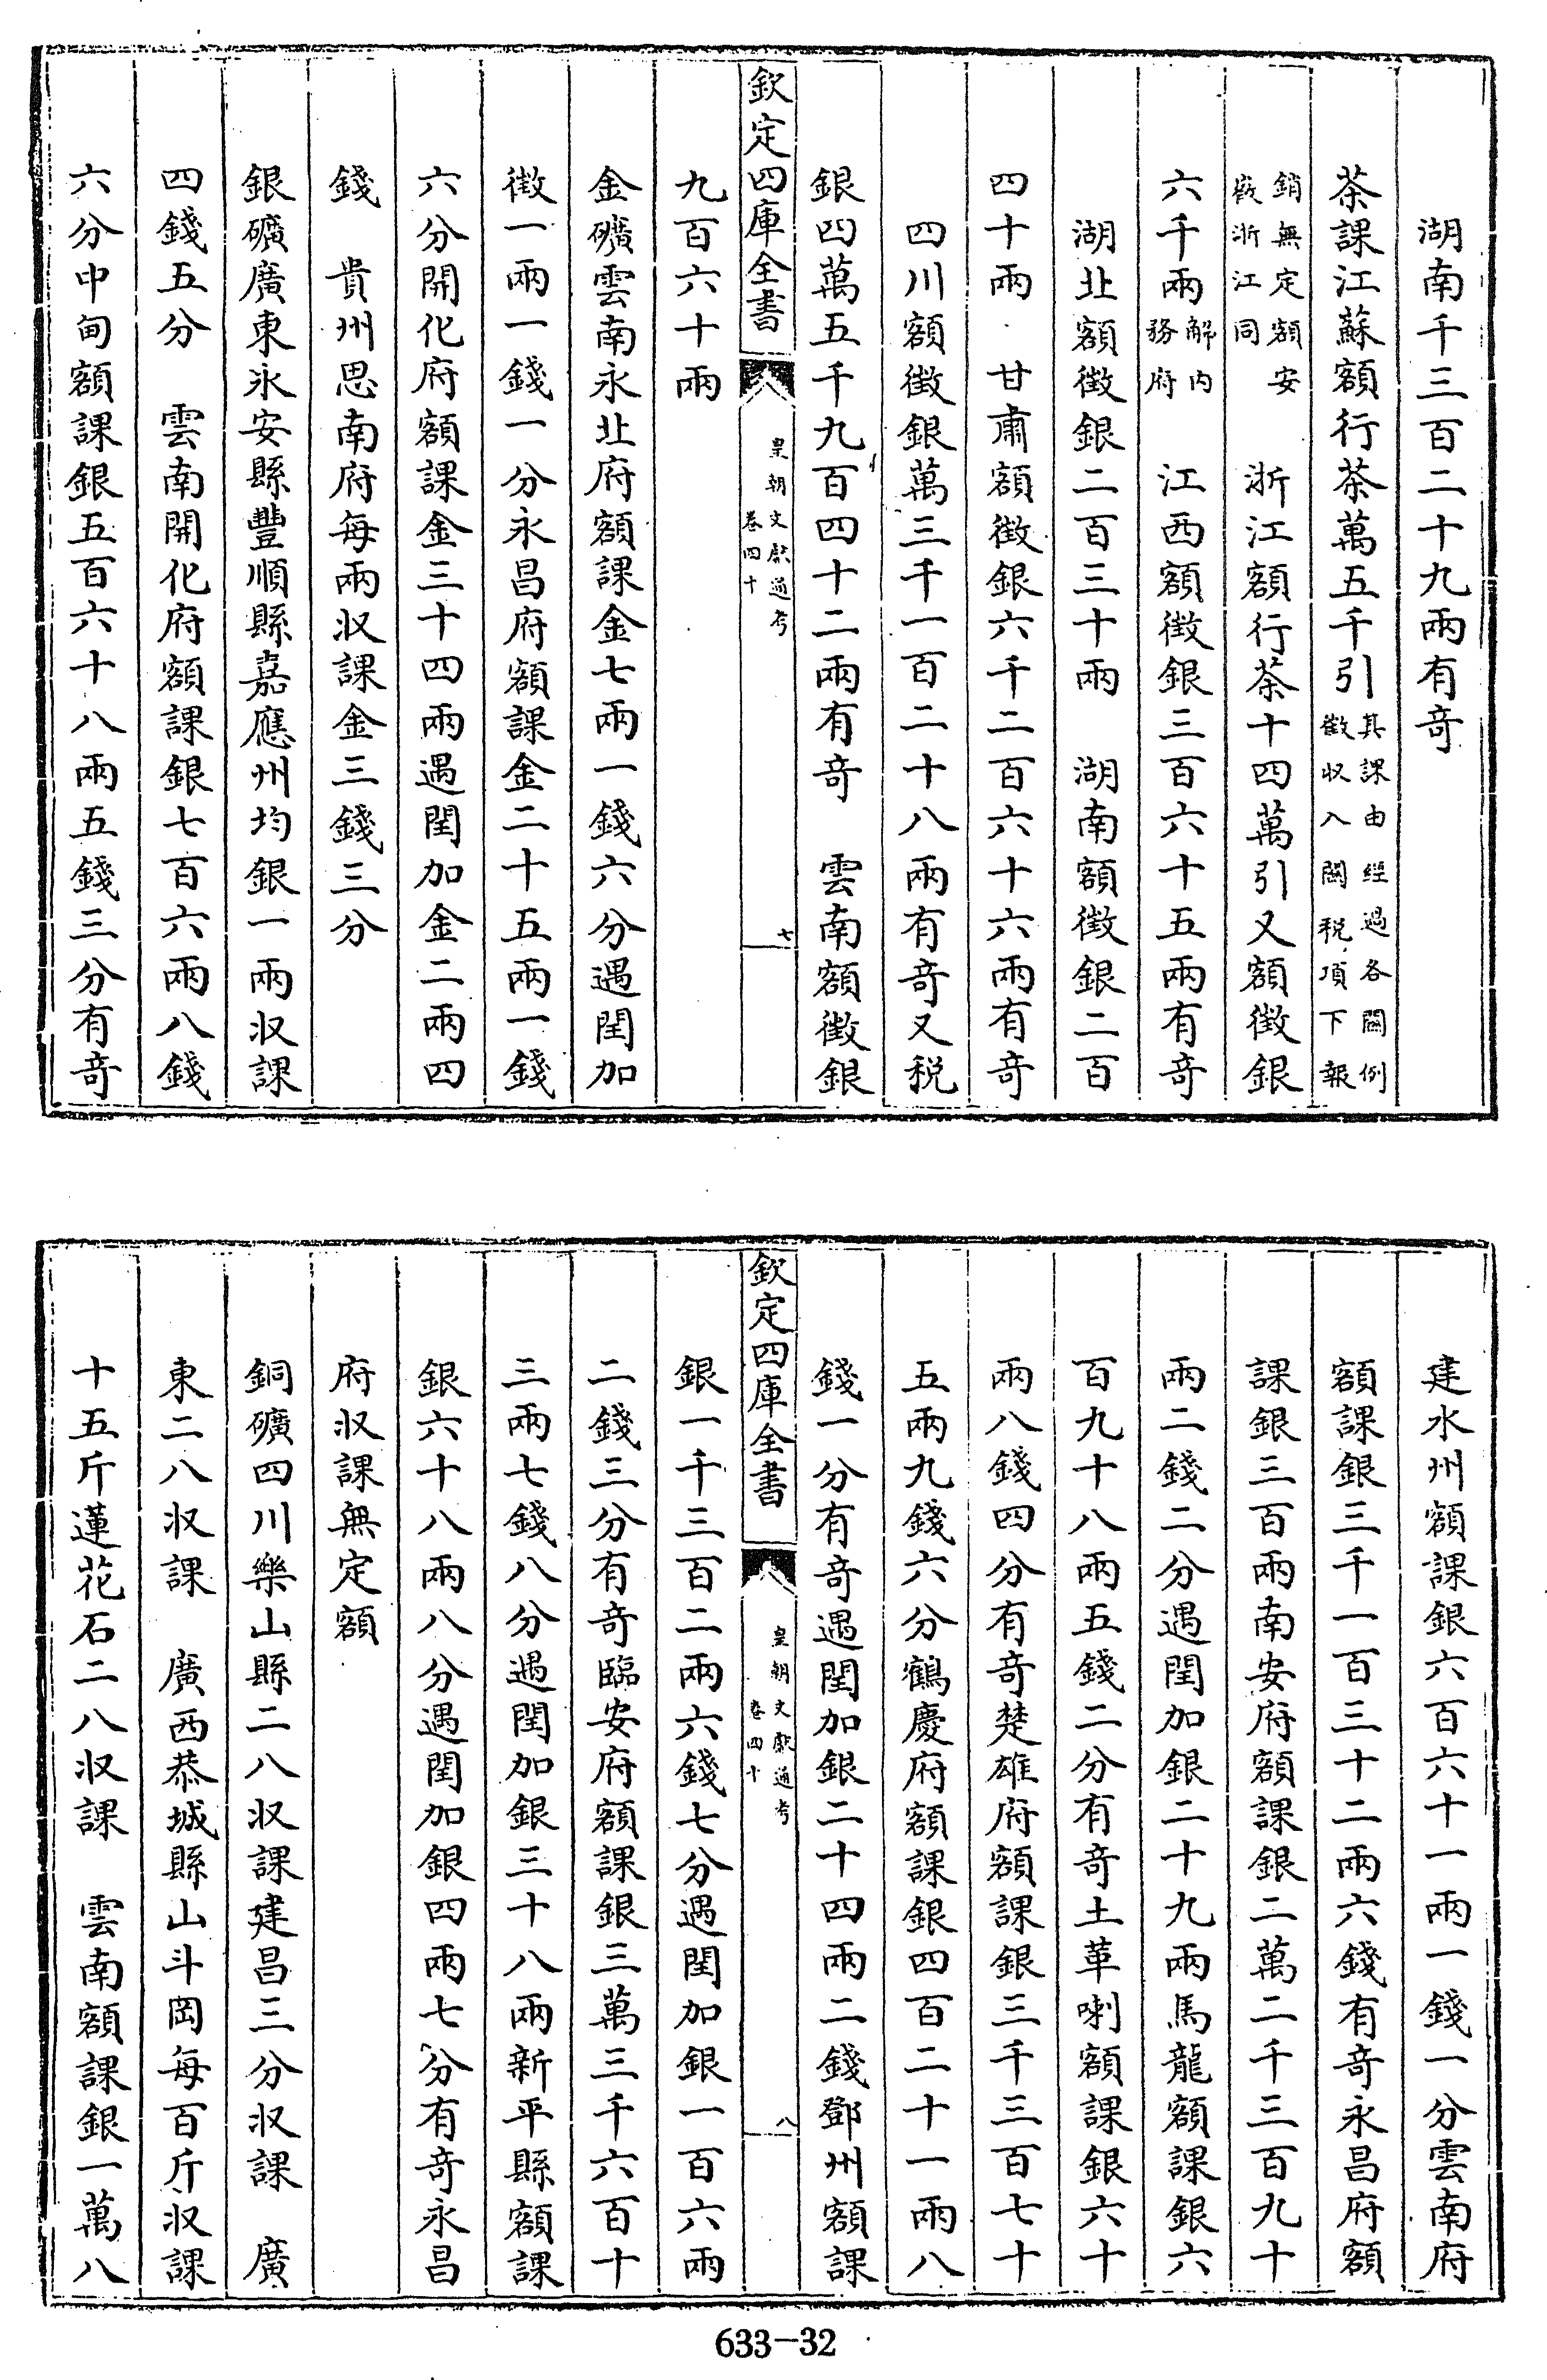 湖南千三百二十九兩有奇
茶課江蘇額行茶萬五千引其課由經過各關例徵收入關稅項下報
銷無定額安徽浙江同 浙江額行茶十四萬引又額徵銀
六千兩解內務府 江西額徵銀三百六十五兩有奇
湖北額徵銀二百三十兩 湖南額徵銀二百
四十兩 甘肅額徵銀六千二百六十六兩有奇
四川額徵銀萬三千一百二十八兩有奇又税
銀四萬五千九百四十二兩有奇 雲南額徵銀
欽定四庫全書
皇朝文獻通考
卷四十
七
九百六十兩
金礦雲南永北府額課金七兩一錢六分遇閏加
徵一兩一錢一分永昌府額課金二十五兩一錢
六分開化府額課金三十四兩遇閏加金二兩四
錢 貴州思南府每兩収課金三錢三分
銀礦廣東永安縣豐順縣嘉應州均銀一兩収課
四錢五分 雲南開化府額課銀七百六兩八錢
六分中甸額課銀五百六十八兩五錢三分有奇
建水州額課銀六百六十一兩一錢一分雲南府
額課銀三千一百三十二兩六錢有奇永昌府額
課銀三百兩南安府額課銀二萬二千三百九十
兩二錢二分遇閏加銀二十九兩馬龍額課銀六
百九十八兩五錢二分有奇土革喇額課銀六十
兩八錢四分有奇楚雄府額課銀三千三百七十
五兩九錢六分鶴慶府額課銀四百二十一兩八
錢一分有奇遇閏加銀二十四兩二錢鄧州額課
欽定四庫全書
皇朝文獻通考
卷四十
八
銀一千三百二兩六錢七分遇閏加銀一百六兩
二錢三分有奇臨安府額課銀三萬三千六百十
三兩七錢八分遇閏加銀三十八兩新平縣額課
銀六十八兩八分遇閏加銀四兩七分有奇永昌
府収課無定額
銅礦四川樂山縣二八収課建昌三分収課 廣
東二八収課 廣西恭城縣山斗岡每百斤収課
十五斤蓮花石二八収課 雲南額課銀一萬八
633-32